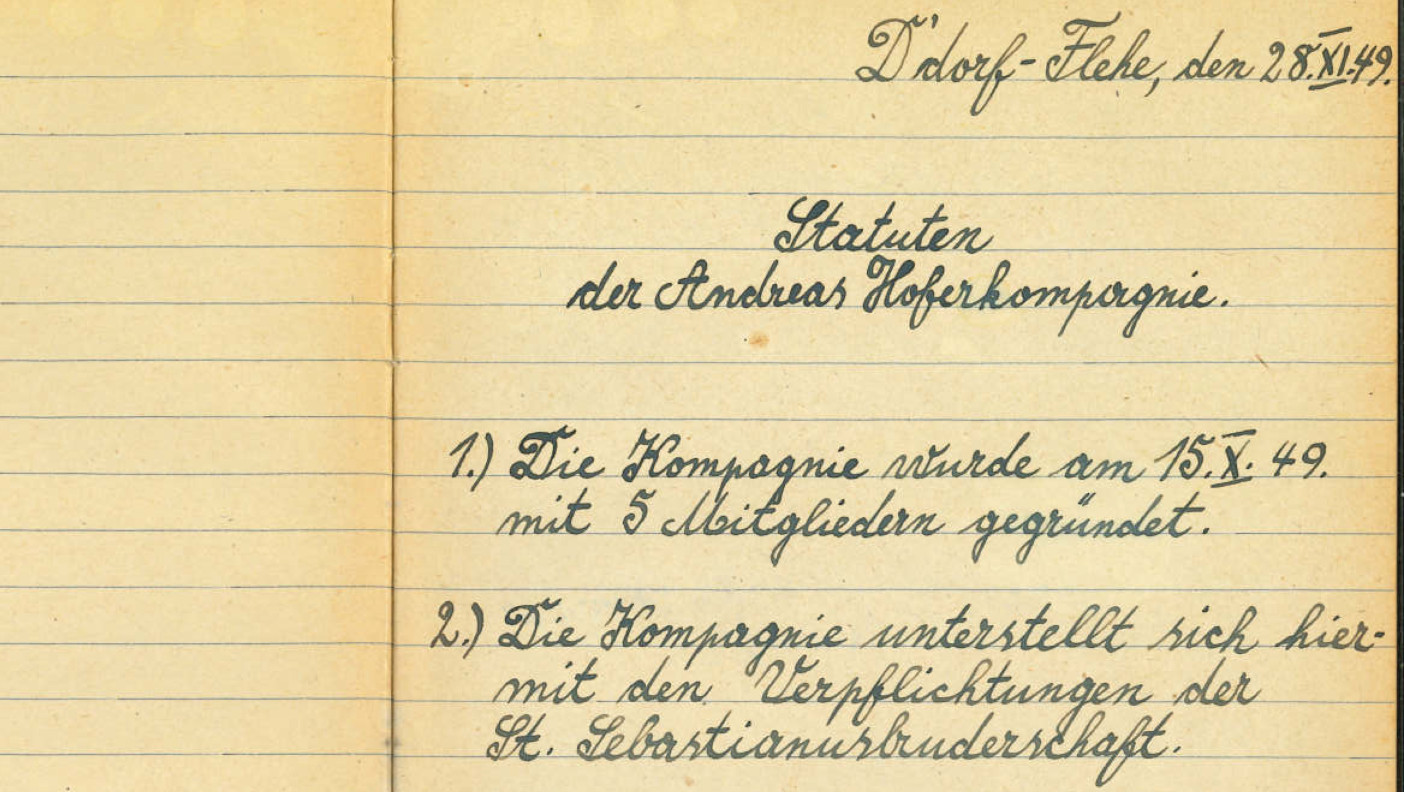 D'dorf-Flehe, den 28.XI.49.
Statuten
der Andreas Hoferkompagnie.
1.) Die Kompagnie wurde am 15.X.49.
mit 5 Mitgliedern gegründet.
2.) Die Kompagnie unterstellt sich hier-
mit den Verpflichtungen der
St. Sebastianusbruderschaft.